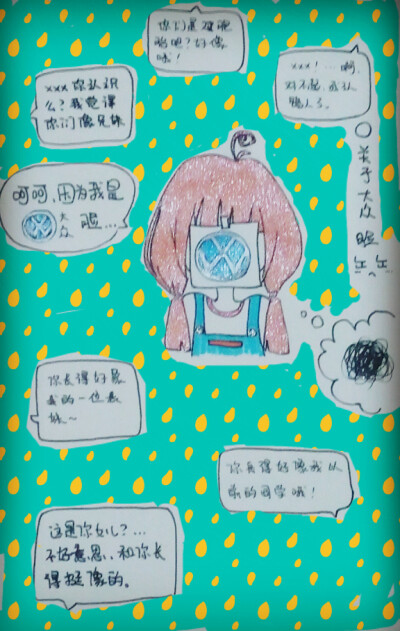 你们是双胞
胎吧?好像
哦!
xxx 你认识
么?我觉得
你们像兄妹
xxx!…啊,
对不起,我认
错人了。
关于大众脸
呵呵,因为我是
大众脸…
你长得好像
我的一位表
妹~
你长得好像我以
前的同学哦!
这是你女儿?…
不好意思,和你长
得挺像的。